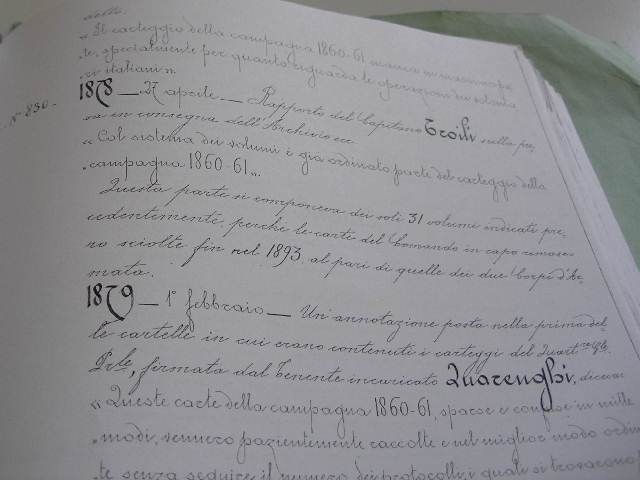 detto.
« Il carteggio della campagna 1860-61 manca in massima pa
te, specialmente per quanto riguarda le operazioni dei volonta
ri italiani ».
N° 890.
1878 — 27 aprile — Rapporto del Capitano Troili nella pre
sa in consegna dell'Archivio ecc
« Col sistema dei volumi è già ordinato parte del carteggio della
campagna 1860-61 ».
Questa parte si componeva dei soli 31 volumi indicati pre-
cedentemente perchè le carte del Comando in capo rimase-
ro sciolte fin nel 1893, al pari di quelle dei due Corpi d'Ar-
mata.
1879 — 1° febbraio — Un'annotazione posta nella prima del-
le cartelle in cui erano contenuti i carteggi del Quart
Prle, firmata dal Tenente incaricato Quarenghi, diceva
« Queste carte della campagna 1860-61, sparse e confuse in mille
modi, vennero pazientemente raccolte e nel miglior modo ordin
te senza seguire il numero dei protocolli, i quali si trovarono